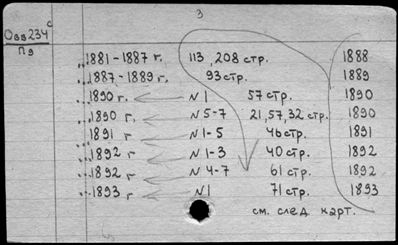 3
Овв234 с
Пд
1881-1887 г. 113, 208 стр. 1888
1887-1889 г. 93 стр. 1889
1890 г. N1 57 стр. 1890
1890 г. N5-7 21,57,32 стр. 1890
1891 г. N1-5 46 стр. 1891
1892 г. N1-3 40 стр. 1892
1892 г. N4-7 61 стр. 1892
1893 г. N1 71 стр. 1893
см. след. карт.